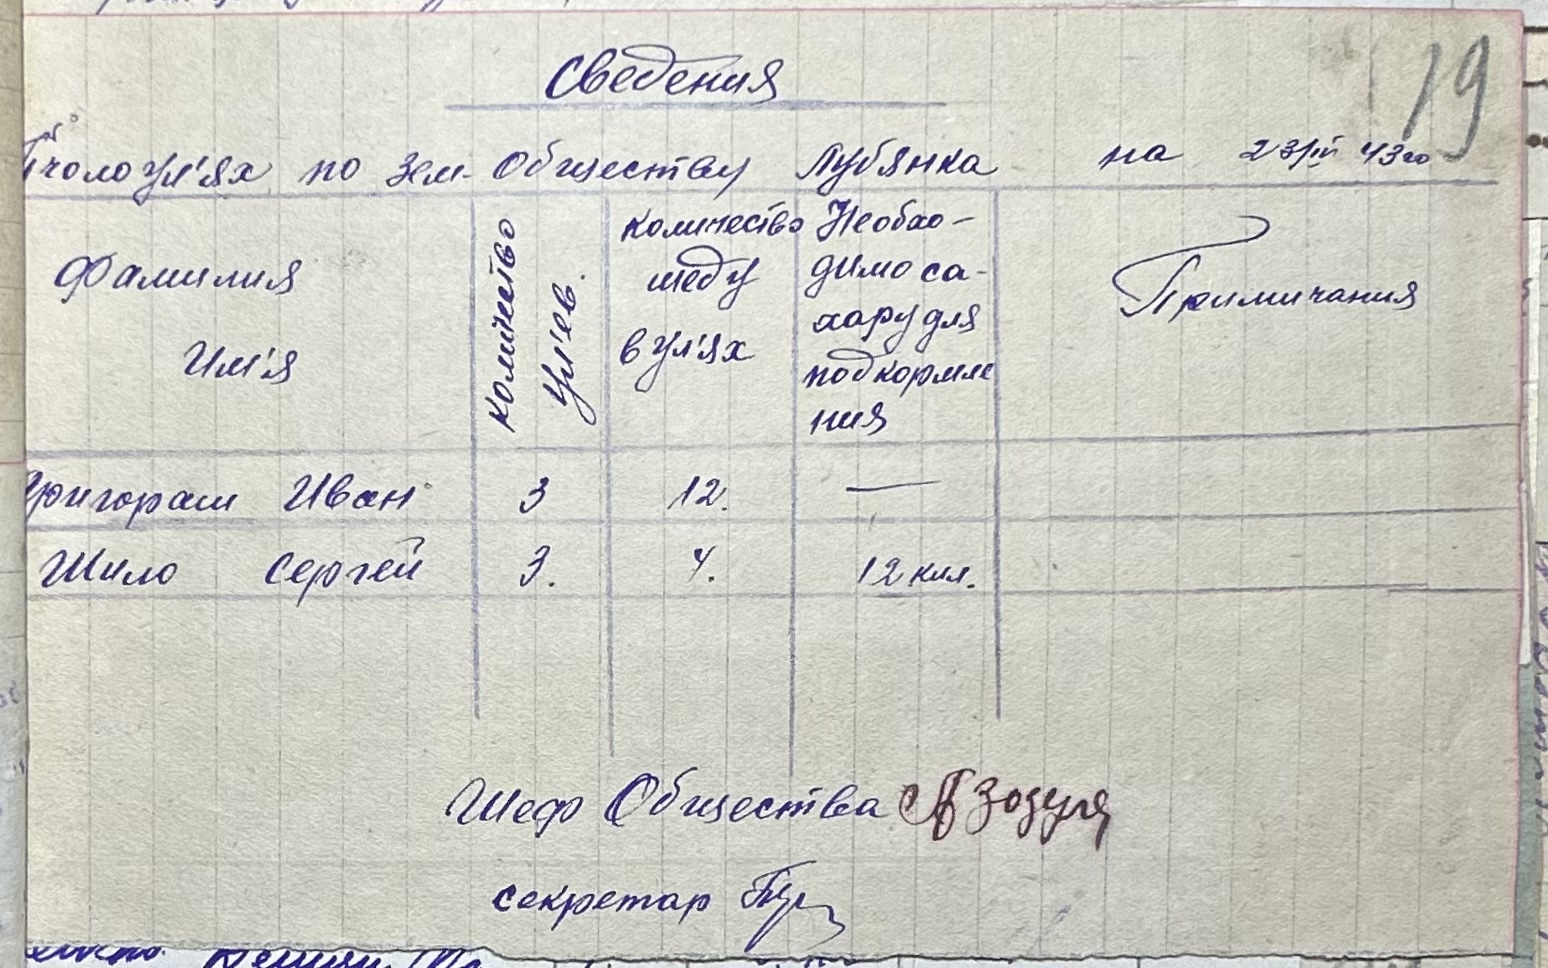 19
Сведения
Пчолоул'ях по Зем- Обществу Лубянка на 23/III 43го
Фамилия
Им'я
количество
ул'ев.
количество
меду
в ул'ях
Необхо-
димо са-
хару для
подкормле
ния
Примичания
Григораш Иван 3 12. —
Шило Сергей 3. 4. 12 кил.
Шеф Общества Зозуля
секретар